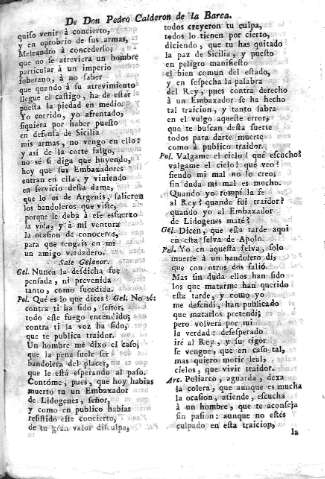 De Don Pedro Calderon de la Barca.
quiso venir à concierto,
en oprobrio de sus armas,
Meleandro à concederlos;
que no se atreviera un hombre
particular à un imperio
soberano, à no saber
que quando à su atrevimiento
llegue el castigo, ha de estàr
puesta la piedad en medio.
Yo corrido, yo afrentado,
siquiera por haber puesto
en defensa de Sicilia
mis armas, no vengo en ello:
y asi de la corte salgo,
no sé si diga que huyendo,
hoy que sus Embaxadores
entran en ella, y viniendo
en servicio desta dama,
que lo es de Argenis, salieron
los bandoleros que viste,
porque le deba à ese esfuerzo
la vida, y à mi ventura
la ocasion de conoceros,
para que tengais en mi
un amigo verdadero.
Sale Gelanor.
Gel. Nunca la desdicha fue
pensada, ni prevenida
tanto, como sucedida.
Pol. Qué es lo que dices? Gel. No sé:
contra ti ha sido, señor,
todo este fuego encendido;
contra ti la voz ha sido,
que te publica traidor.
Un hombre me dixo el caso,
que la pena suele ser
bandolera del placer,
que le está esperando al paso.
Contóme, pues, que hoy habias
muerto tu un Embaxador
de Lidogenes, señor,
y como en publico habias
resistido este concierto,
de tu gran valor disculpa,
todos creyeron tu culpa,
todos lo tienen por cierto,
diciendo, que tu has quitado
la paz de Sicilia, y puesto
en peligro manifiesto
el bien comun del estado,
y en sospecha la palabra
del Rey, pues contra derecho
à un Embaxador se ha hecho
tal traicion, y tanto labra
en el vulgo aqueste error,
que te buscan desta suerte
todos para darte muerte
como à publico traidor.
Pol. Valgame el cielo! que escucho?
valgame el cielo! que veo?
siendo mi mal no lo creo;
sin duda mi mal es mucho.
Quando yo rompí la fe
al Rey? quando fui traidor?
quando yo al Embaxador
de Lidogenes maté?
Gel. Dicen, que esta tarde aqui
en esta selva de Apolo.
Pol. Yo en aquesta selva, solo
muerte à un bandolero dí,
que con otros dos salió.
Mas sin duda ellos han sido
los que matarme han querido
esta tarde, y como yo
me defendí, han publicado
que matarlos pretendí;
pero volverá por mi
la verdad: desesperado
iré al Rey, y su rigor
se vengue; que en caso tal,
mas quiero morir leal,
cielos, que vivir traidor.
Arc. Poliarco, aguarda, dexa
la colera, que aunque es mucha
la ocasion, atiende, escucha
à un hombre, que te aconseja
sin pasion: aunque no estés
culpado en esta traicion,
la